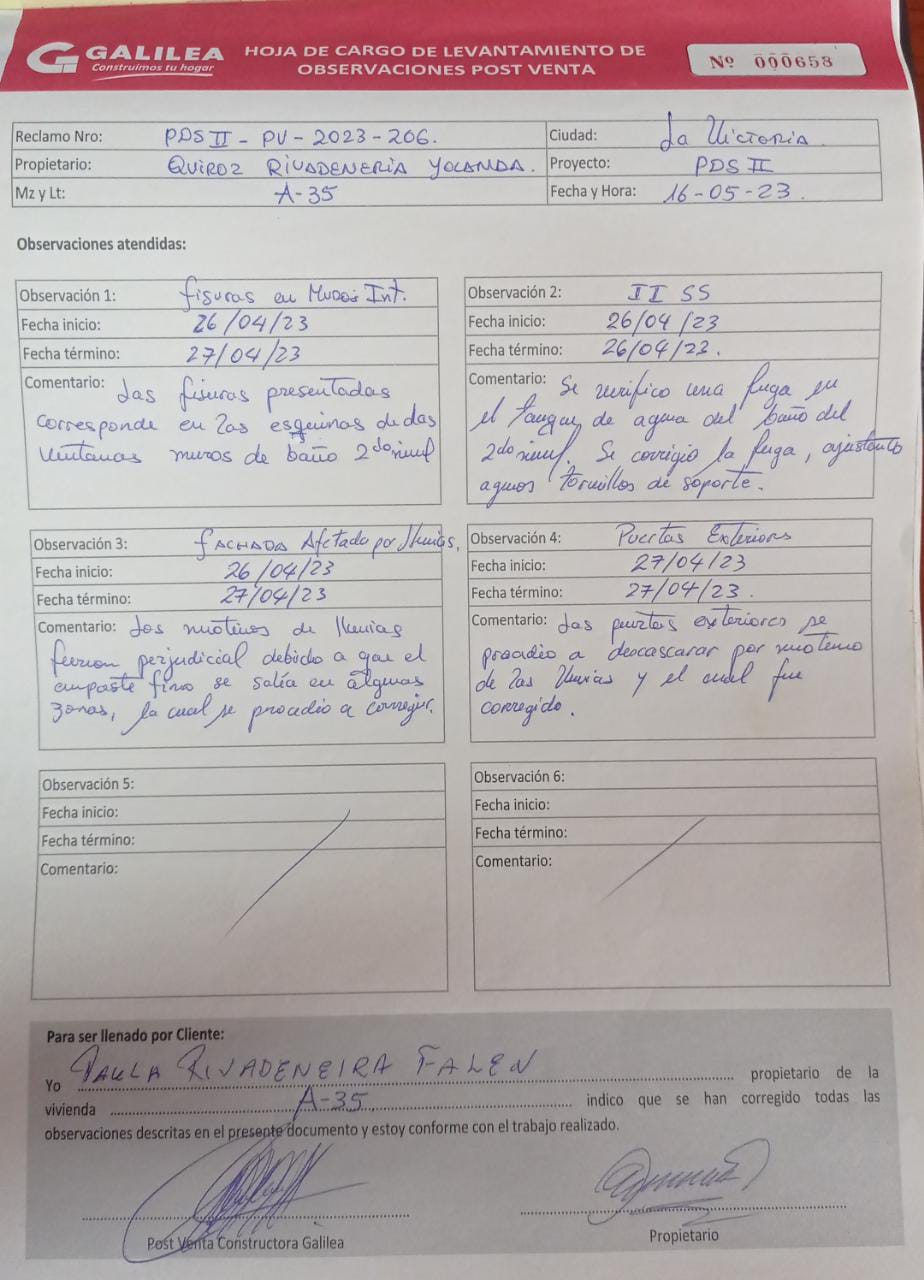 GALILEA
Construimos tu hogar
HOJA DE CARGO DE LEVANTAMIENTO DE
OBSERVACIONES POST VENTA
Nº 000658
Reclamo Nro: PDS II - PV - 2023 - 206.
Ciudad: La Victoria
Propietario: QUIROZ RIVADENERIA YOLANDA.
Proyecto: PDS II
Mz y Lt: A-35
Fecha y Hora: 16-05-23.
Observaciones atendidas:
Observación 1: fisuras en Muros Int.
Fecha inicio: 26/04/23
Fecha término: 27/04/23
Comentario: Las fisuras presentadas
corresponde en las esquinas de las
Ventanas muros de baño 2do nivel
Observación 2: II SS
Fecha inicio: 26/04/23
Fecha término: 26/04/23.
Comentario: Se verifico una fuga en
el tanque de agua del baño del
2do nivel. Se corrigio la fuga,
tornillos de soporte.
Observación 3: FACHADA Afectado por lluvias,
Fecha inicio: 26/04/23
Fecha término: 27/04/23
Comentario: Los motivos de lluvias
fueron perjudicial debido a que el
empaste fino se salía en algunas
zonas, la cual se procedio a corregir.
Observación 4: Puertas Exteriores
Fecha inicio: 27/04/23
Fecha término: 27/04/23.
Comentario: Las puertas exteriores se
procedio a descascarar por motivo
de las lluvias y el cual fue
corregido.
Observación 5:
Fecha inicio:
Fecha término:
Comentario:
Observación 6:
Fecha inicio:
Fecha término:
Comentario:
Para ser llenado por Cliente:
Yo PAULA RIVADENEIRA FALEN propietario de la
vivienda A-35, indico que se han corregido todas las
observaciones descritas en el presente documento y estoy conforme con el trabajo realizado.
Post Venta Constructora Galilea
Propietario